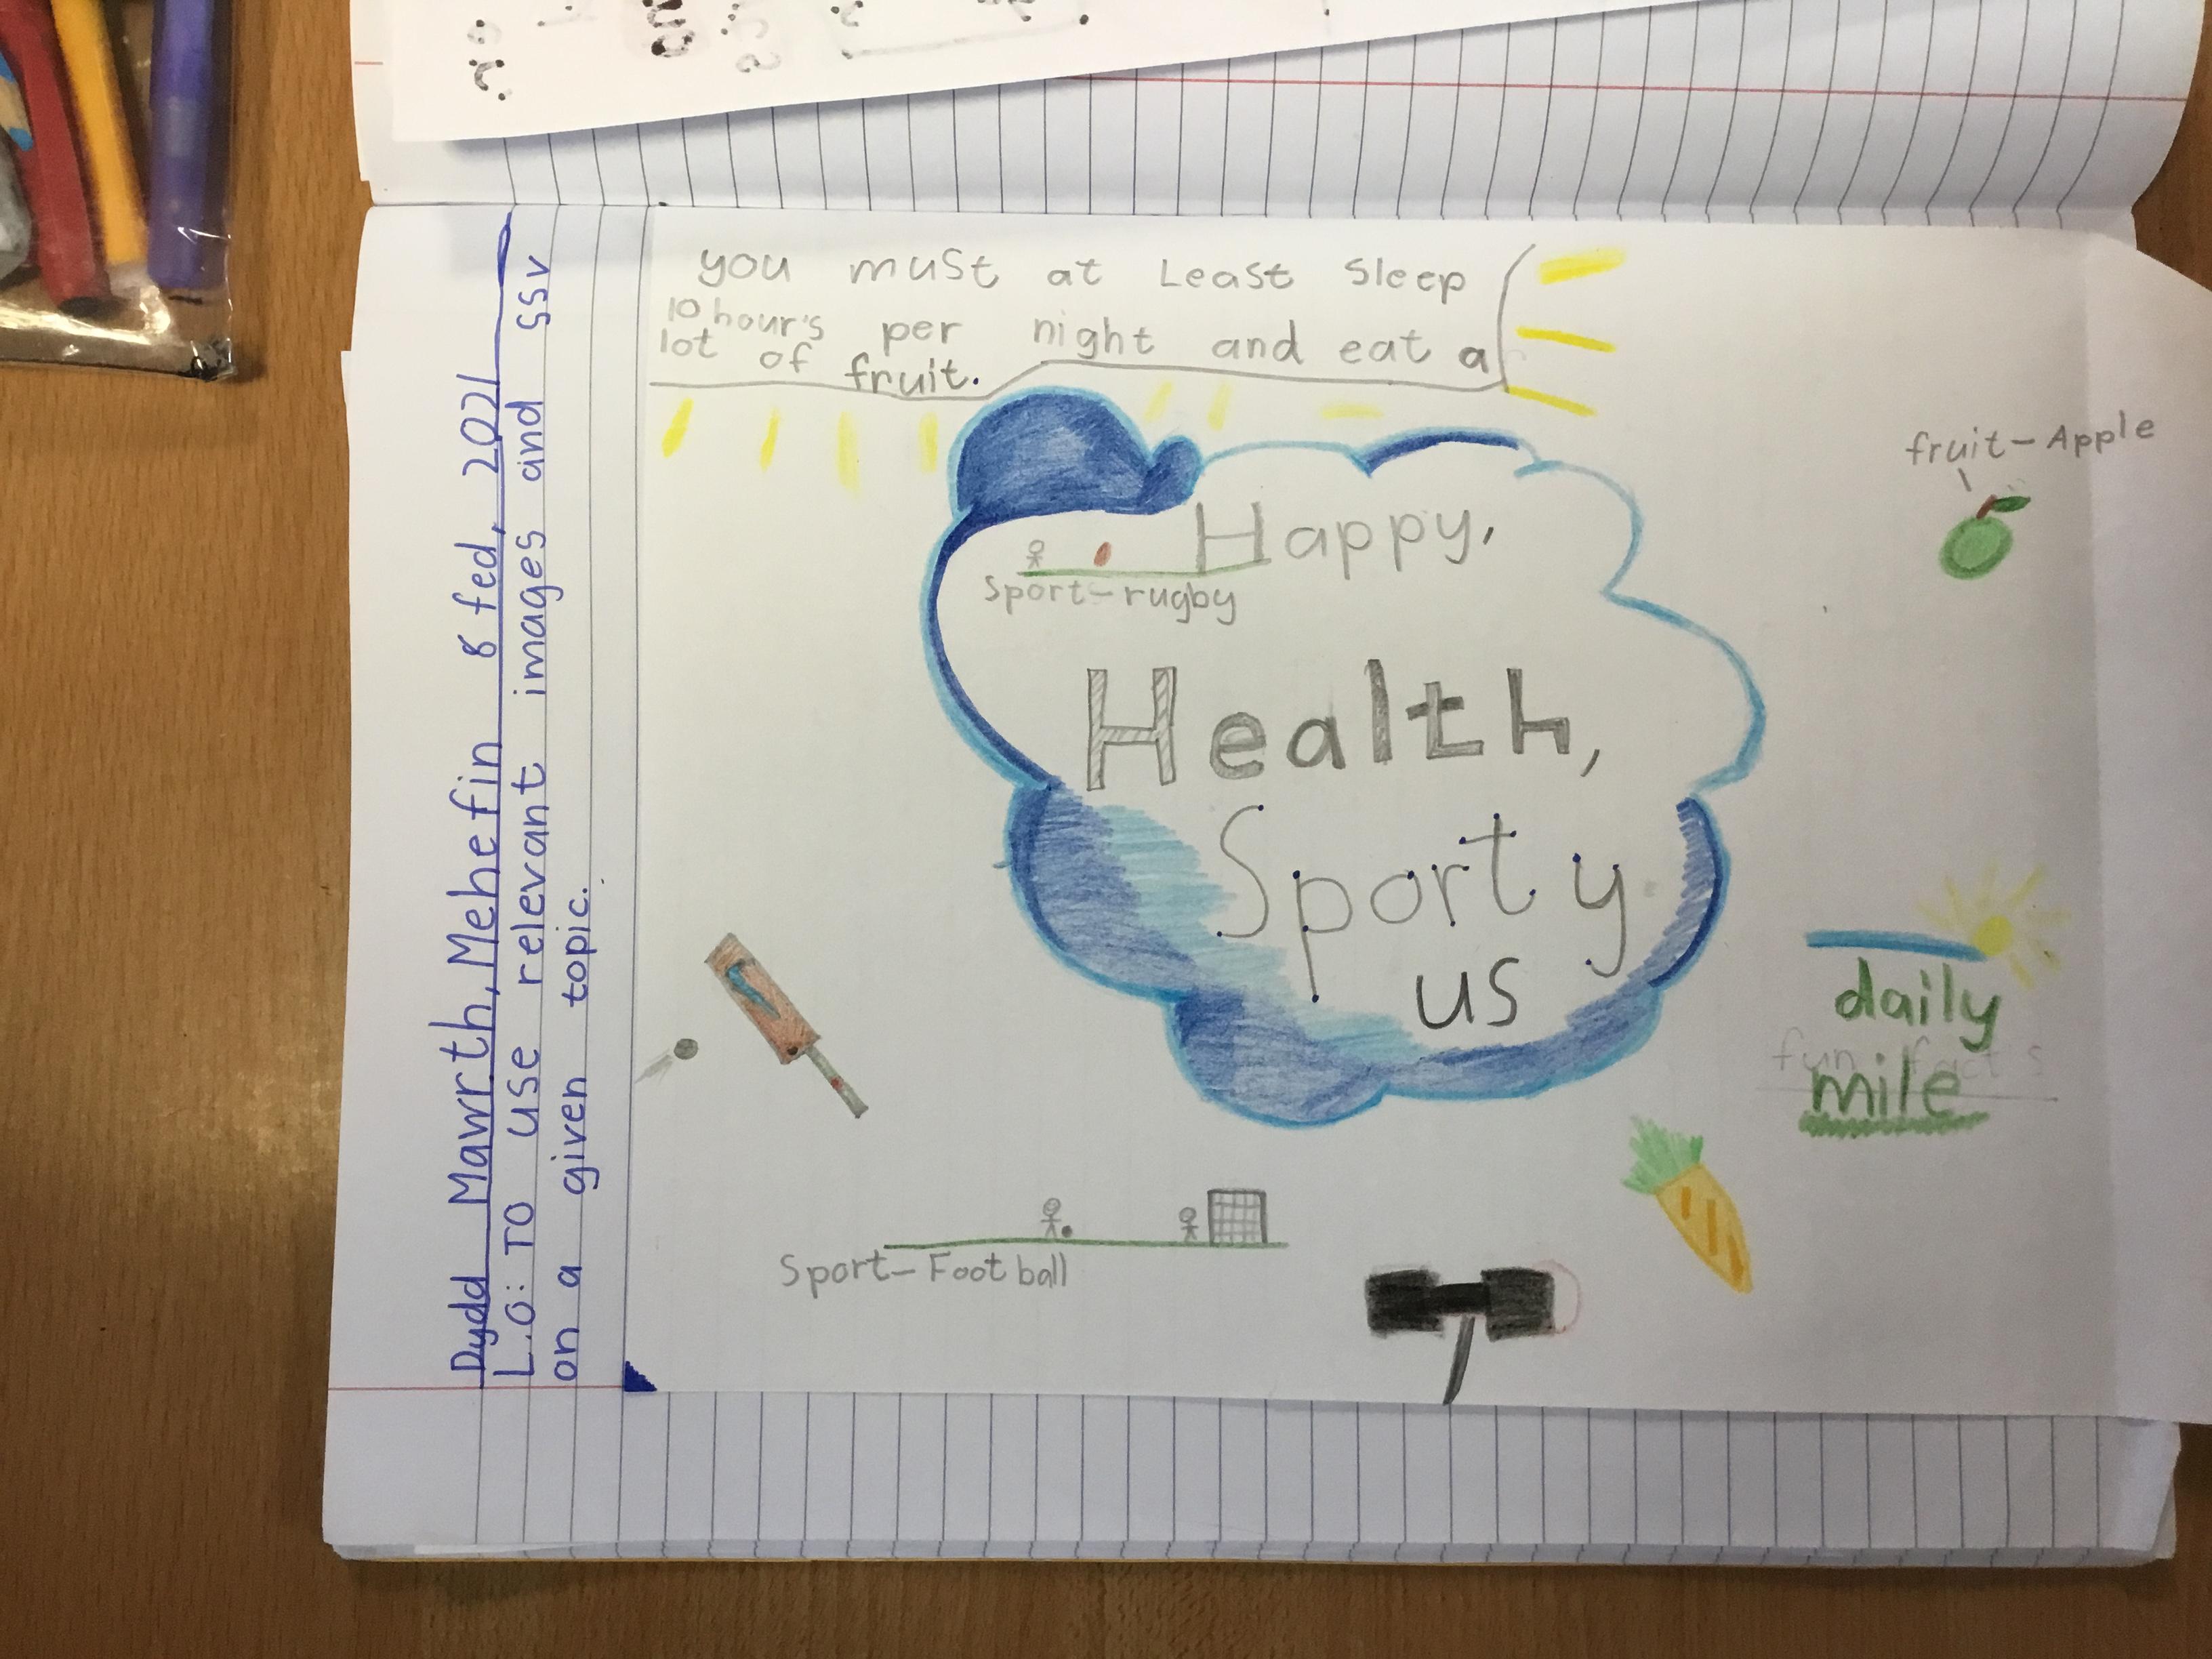 Dydd Mawrth, Mehefin 8fed, 2021
L.O: TO use relevant images and SSV
on a given topic.
you must at Least Sleep
10 hour's per night and eat a
lot of fruit.
fruit-Apple
Happy,
Sport-rugby
Health,
Sporty
us
daily
fun facts
mile
Sport-Football